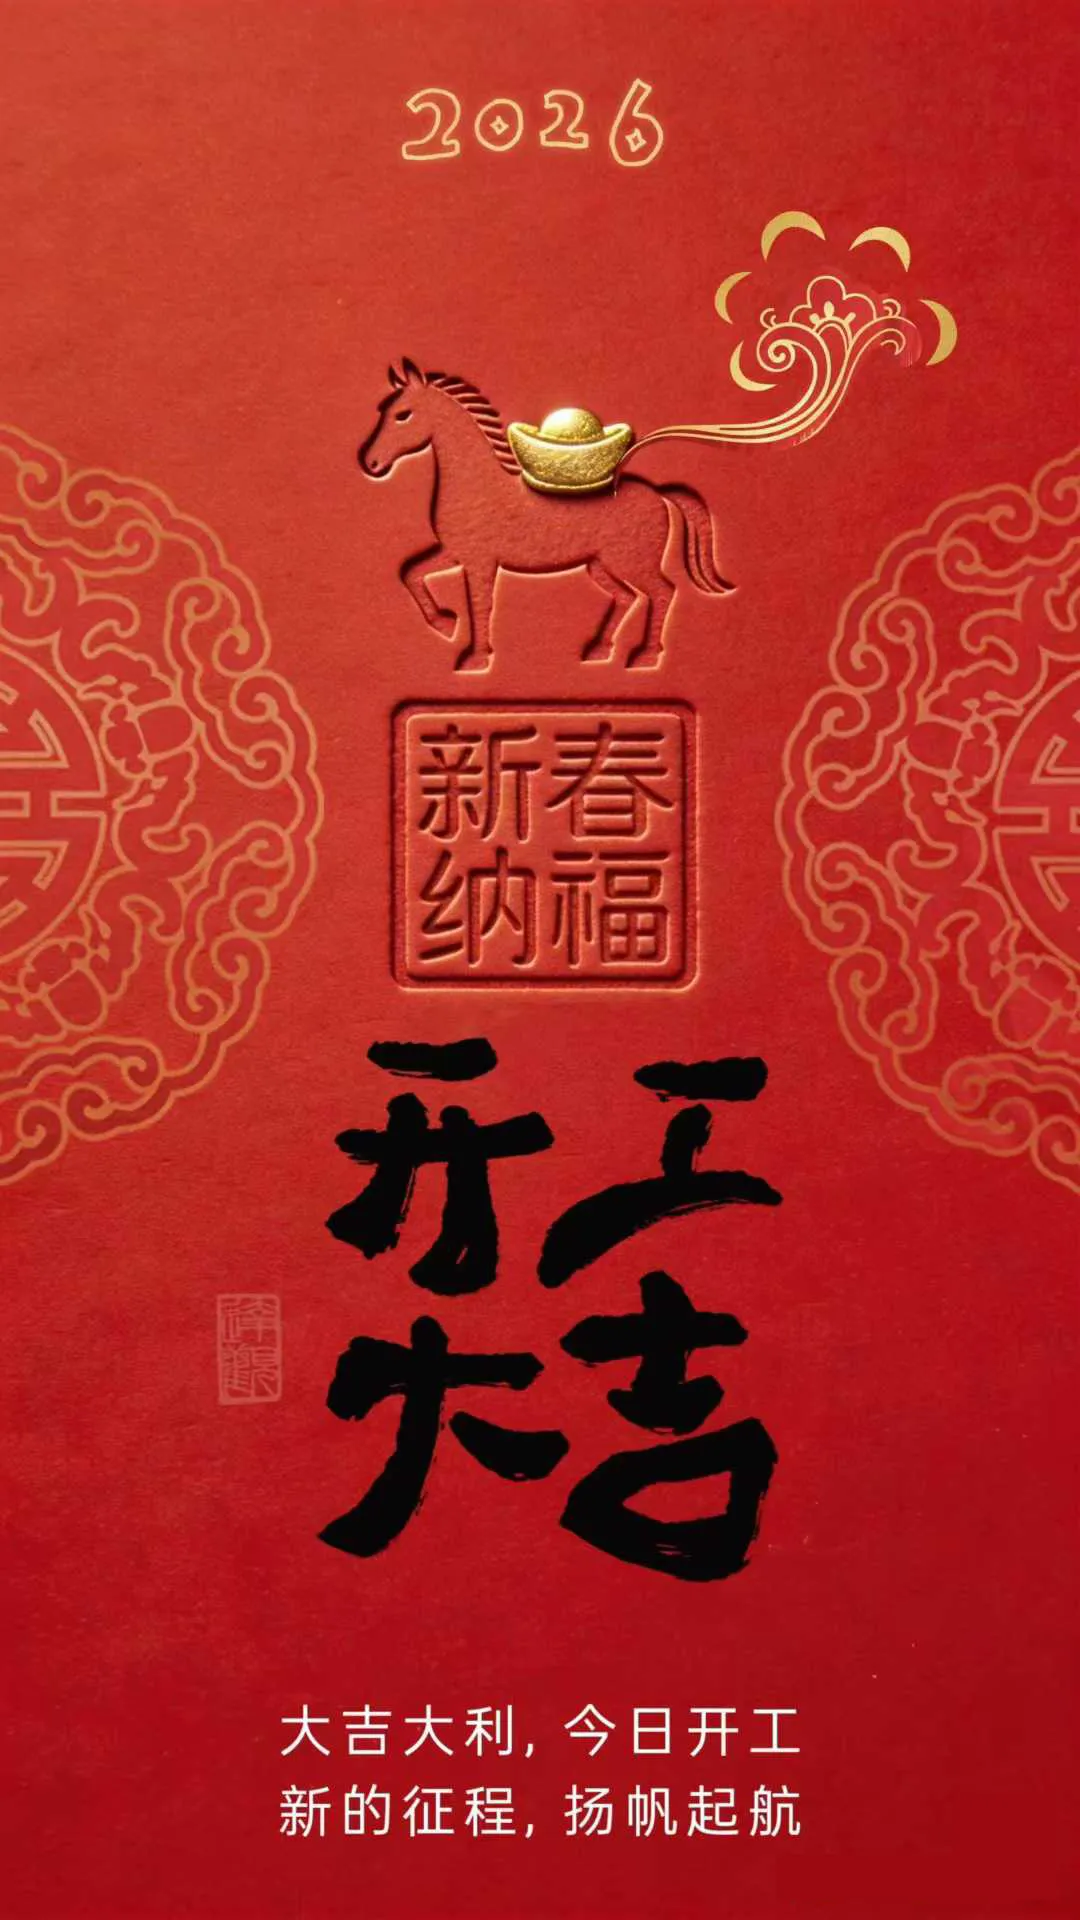 2026
新春
纳福
开工
大吉
大吉大利, 今日开工
新的征程, 扬帆起航